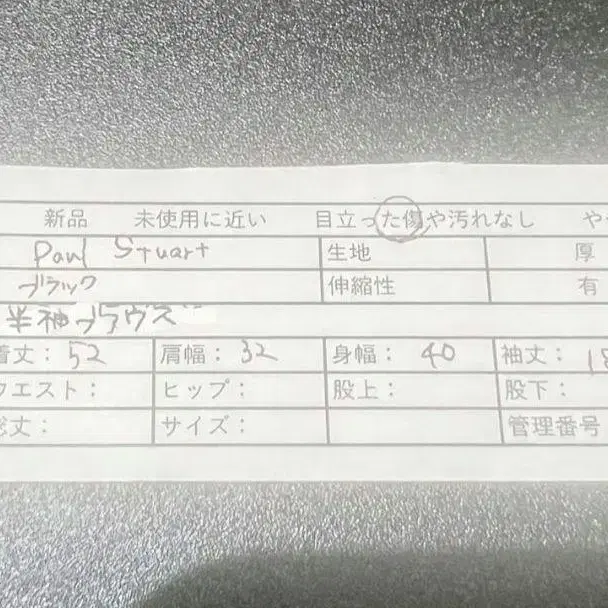 新品 未使用に近い 目立った傷や汚れなし や
Paul Stuart 生地 厚
ブラック 伸縮性 有
半袖ブラウス
着丈：52 肩幅：32 身幅：40 袖丈：18
ウエスト： ヒップ： 股上： 股下：
総丈： サイズ： 管理番号